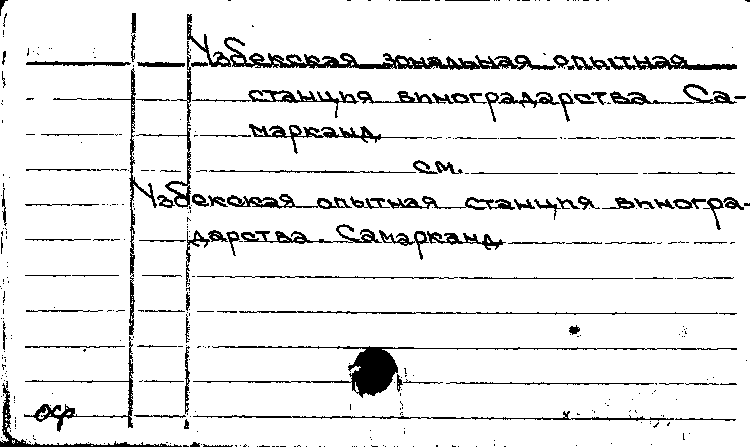 Узбекская зональная опытная
станция виноградарства. Са-
марканд.
см.
Узбекская опытная станция виногра-
дарства. Самарканд.
оср